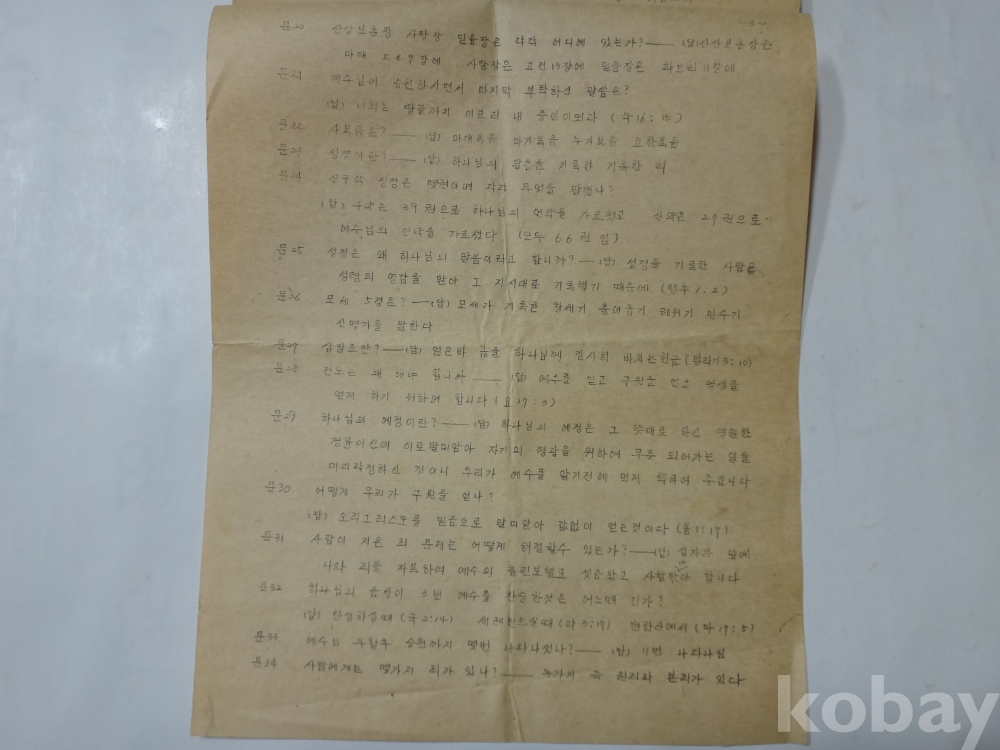 -3-
문20 산상보훈장 사랑장 믿음장은 각각 어디에 있는가?—— (답)산상보훈장은
마태 5.6.7장에 사랑장은 고전13장에 믿음장은 히브리11장에
문21 예수님이 승천하시면서 마지막 부탁하신 말씀은?
(답) 너희는 땅끝까지 이르러 내 증인이되라
문22 사복음은?—— (답) 마태복음 마가복음 누가복음 요한복음
문23 성경이란?—— (답) 하나님의 말씀을 기록한 거룩한 책
문24 신구약 성경은 몇권이며 각각 무엇을 말했나?
(답) 구약은 39권으로 하나님의 언약을 가르쳤고 신약은 27권으로
예수님의 언약을 가르쳤다 (모두 66권 임)
문25 성경은 왜 하나님의 말씀이라고 합니까?—— (답) 성경을 기록한 사람은
성령의 영감을 받아 그 지시대로 기록했기 때문에
문26 모세 5경은?——(답) 모세가 기록한 창세기 출애굽기 레위기 민수기
신명기를 말한다
문27 십일조란?——(답) 얻은바 을 하나님께 감사히 바치는헌금 (말라기3:10)
문28 전도는 왜 해야 합니까 —— (답) 예수를 믿고 구원을 얻고 영생을
얻게 하기 위하여 합니다 (요17:3)
문29 하나님의 예정이란?——(답) 하나님의 예정은 그 뜻대로 하신 영원한
경륜이신데 이로말미암아 자기의 영광을 위하여 무릇 되어가는 일을
미리작정하신 것이니 우리가 예수를 알기전에 먼저 택하여 주십니다
문30 어떻게 우리가 구원을 얻나?
(답) 오직그리스도를 믿음으로 말미암아 값없이 얻는것이다 (롬1:17)
문31 사람이 지은 죄 문제는 어떻게 해결할수 있는가?——(답) 십자가 앞에
나와 죄를 자복하여 예수의 흘린보혈로 씻음받고 사함받아야 합니다
문32 하나님의 음성이 3번 예수를 찬송한것은 어느때 인가?
(답) 탄생하실때 (눅2:14) 세례받으실때 (마3:17) 변화산에서 (마17:5)
문33 예수님 부활후 승천까지 몇번 나타나셨나?—— (답) 11번 나타나심
문34 사람에게는 몇가지 죄가 있나?—— 두가지 즉 원죄와 본죄가 있다
kobay